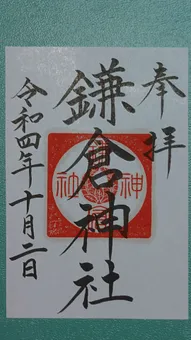 奉拝
鎌倉神社
神社
令和四年十月二日